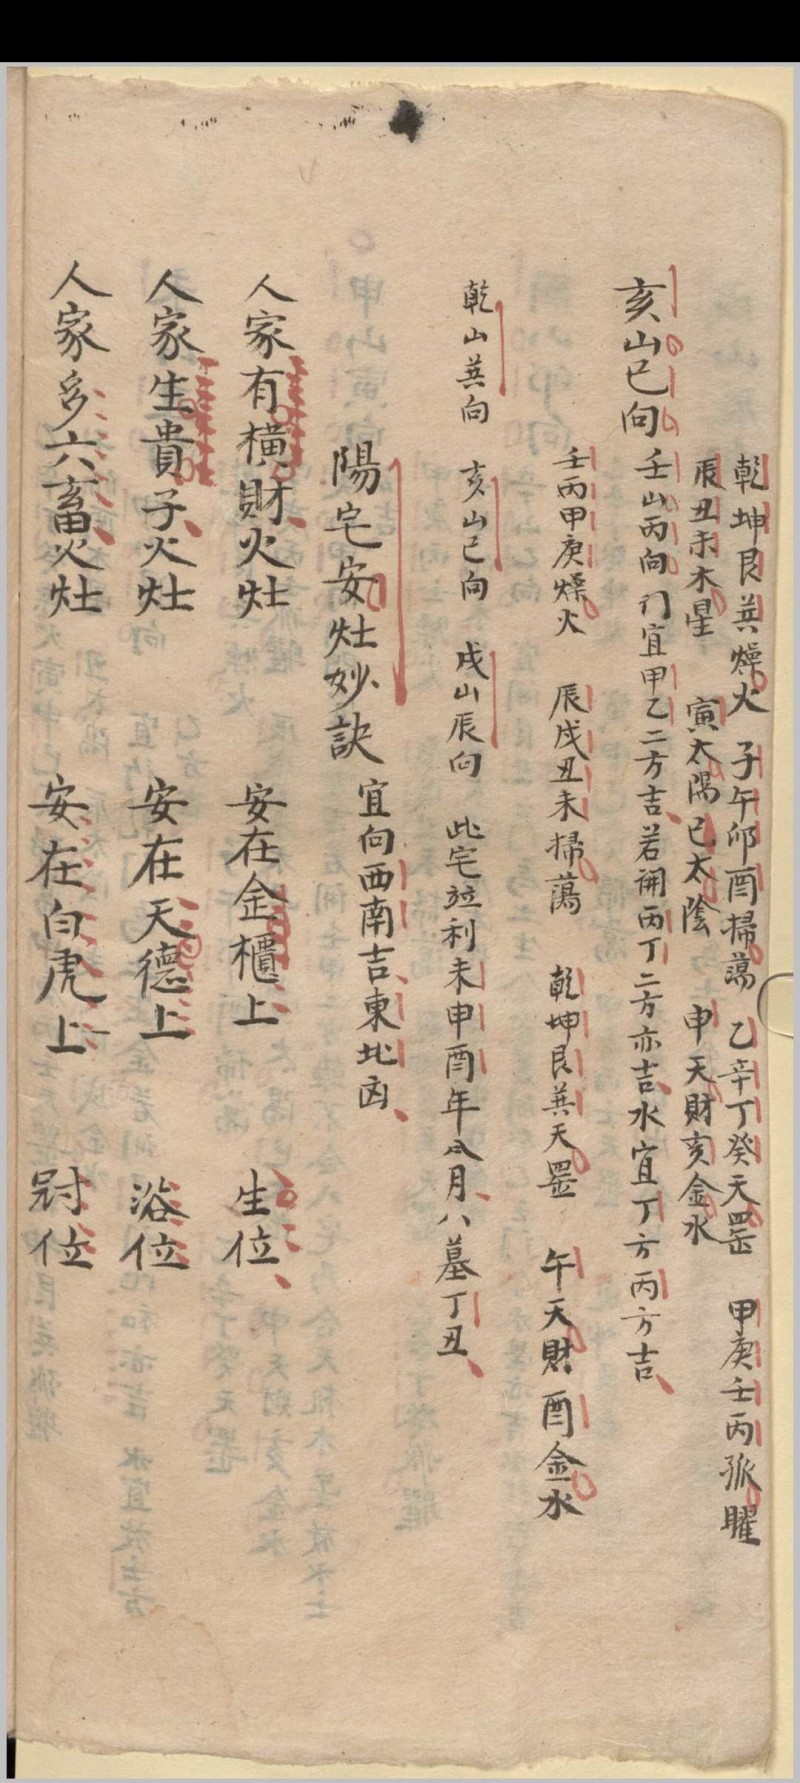 乾坤艮巽燥火 子午卯酉掃蕩 乙辛丁癸天罡 甲庚壬丙孤曜
辰丑未木星 寅太陽巳太陰 申天財亥金水
亥山巳向 壬山丙向 门宜甲乙二方吉若開丙丁二方亦吉水宜丁方丙方吉
壬丙甲庚燥火 辰戌丑未掃蕩 乾坤艮巽天罡 午天財 酉金水
乾山巽向 亥山巳向 戌山辰向 此宅竝利未申酉年 月八墓丁丑
陽宅安灶妙訣 宜向西南吉東北凶
人家有橫財火灶 安在金櫃上 生位
人家生貴子火灶 安在天德上 浴位
人家多六畜火灶 安在白虎上 冠位